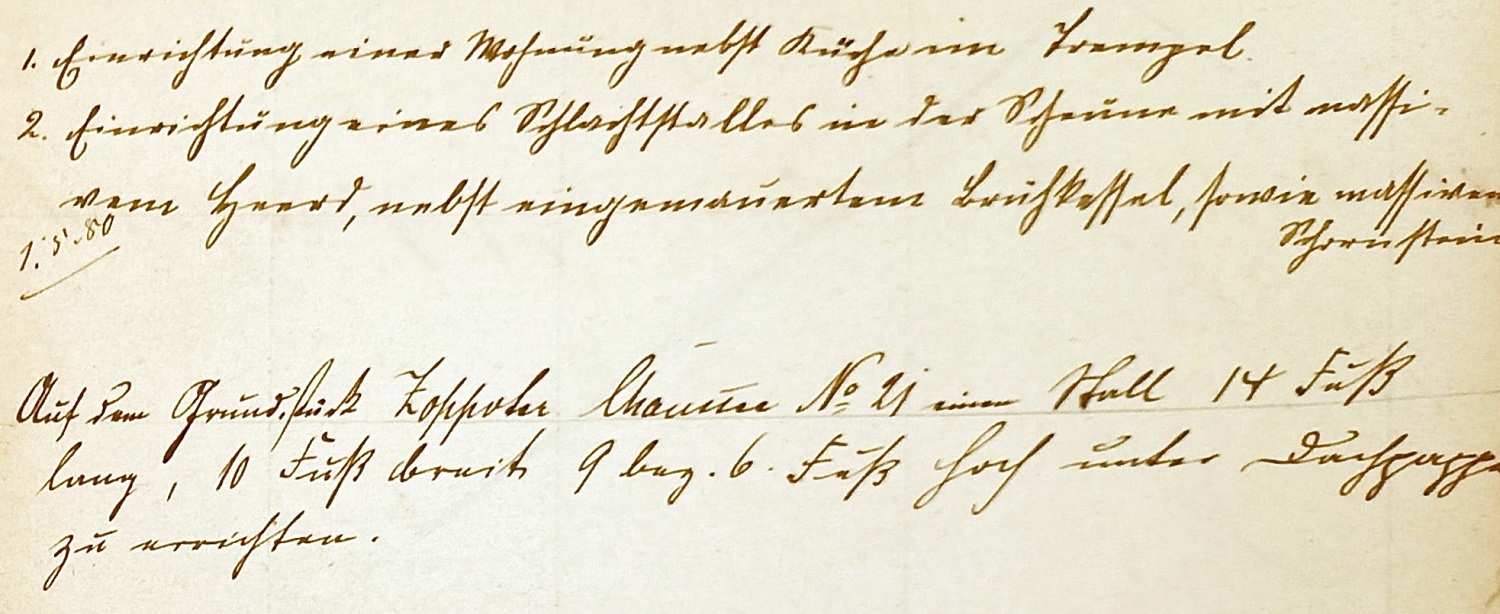 1. Einrichtung einer Wohnung nebst Küche im Trempel.
2. Einrichtung eines Schlachtstalles in der Scheune mit massi-
vem Heerd, nebst eingemauertem Brühkessel, sowie massiven
Schornstein
1.5.80
Auf dem Grundstück Zoppoter Chaussee No 21 einen Stall 14 Fuß
lang, 10 Fuß breit 9 bez. 6. Fuß hoch unter Dachpappe
zu errichten.